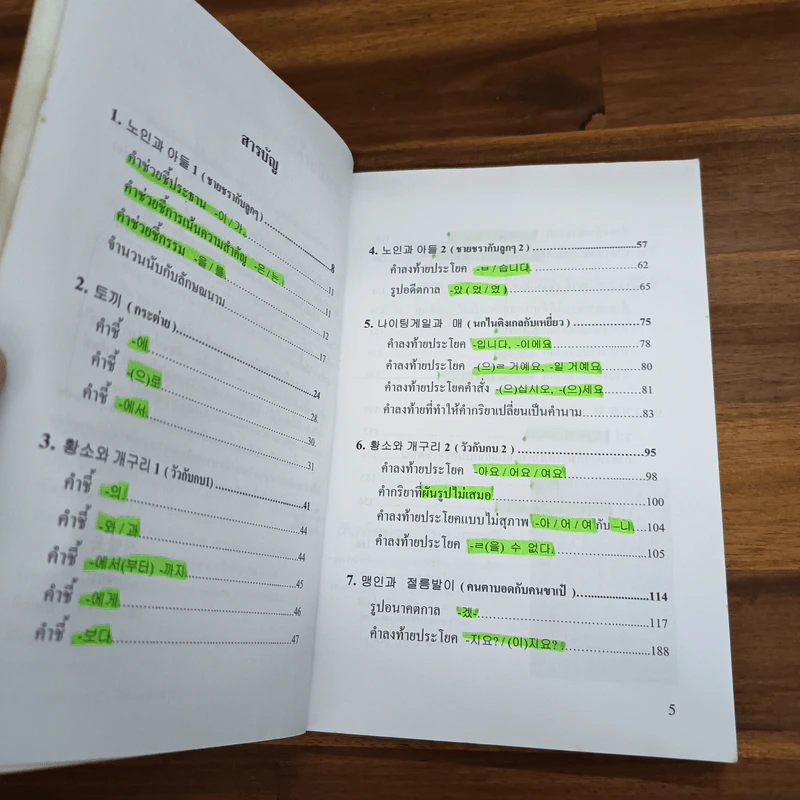 สารบัญ
1. 노인과 아들 1 (ชายชรากับลูกๆ)
คำช่วยชี้ประธาน -이 / 가........8
คำช่วยชี้การเน้นความสำคัญ -은 / 는........11
คำช่วยชี้กรรม -을 / 를........11
จำนวนนับกับลักษณนาม........12
........17
2. 토끼 (กระต่าย)........24
คำชี้ -에........28.
คำชี้ -(으)로........30.
คำชี้ -에서........31
3. 황소와 개구리 1 (วัวกับกบ1)........41
คำชี้ -의........44
คำชี้ -와 / 과........44
คำชี้ -에서(부터) -까지........45
คำชี้ -에게........46
คำชี้ -보다........47
4. 노인과 아들 2 (ชายชรากับลูกๆ 2)........57
คำลงท้ายประโยค -ㅂ / 습니다........62
รูปอดีตกาล -았 (었 / 였)........65
5. 나이팅게일과 매 (นกไนติงเกลกับเหยี่ยว)........75
คำลงท้ายประโยค -입니다, -이에요........78
คำลงท้ายประโยค -(으)ㄹ 거예요, -일 거예요........80
คำลงท้ายประโยคคำสั่ง -(으)십시오, -(으)세요........81
คำลงท้ายที่ทำให้คำกริยาเปลี่ยนเป็นคำนาม........83
6. 황소와 개구리 2 (วัวกับกบ 2)........95
คำลงท้ายประโยค -아요 / 어요 / 여요........98
คำกริยาที่ผันรูปไม่เสมอ........100
คำลงท้ายประโยคแบบไม่สุภาพ -아 / 어 / 여 กับ –니........104
คำลงท้ายประโยค -ㄹ(을) 수 없다........105
7. 맹인과 절름발이 (คนตาบอดกับคนขาเป๋)........114
รูปอนาคตกาล -겠-........117
คำลงท้ายประโยค -지요? / (이)지요?........188
5